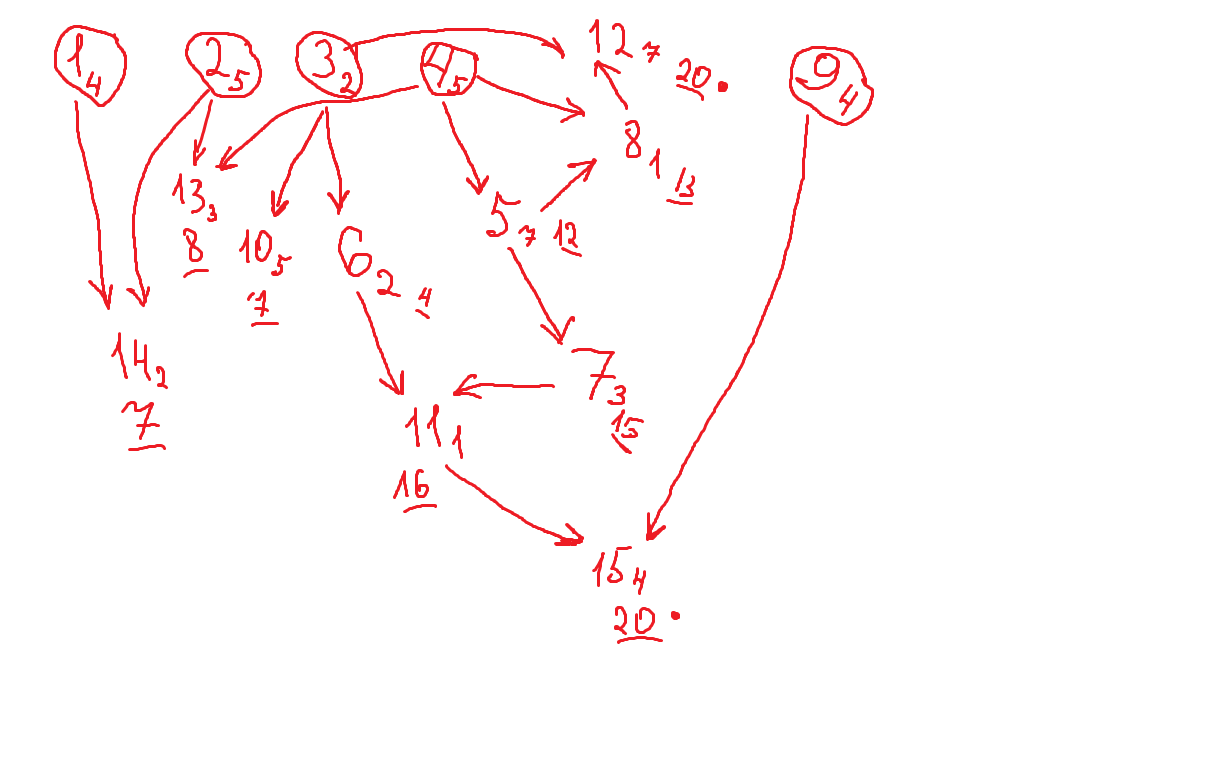 1 4
2 5
3 2
4 5
12 7 20.
9 4
8 1 13
13 3
8
10 5
7
6 2 4
5 7 12
14 2
7
7 3
15
11 1
16
15 4
20.